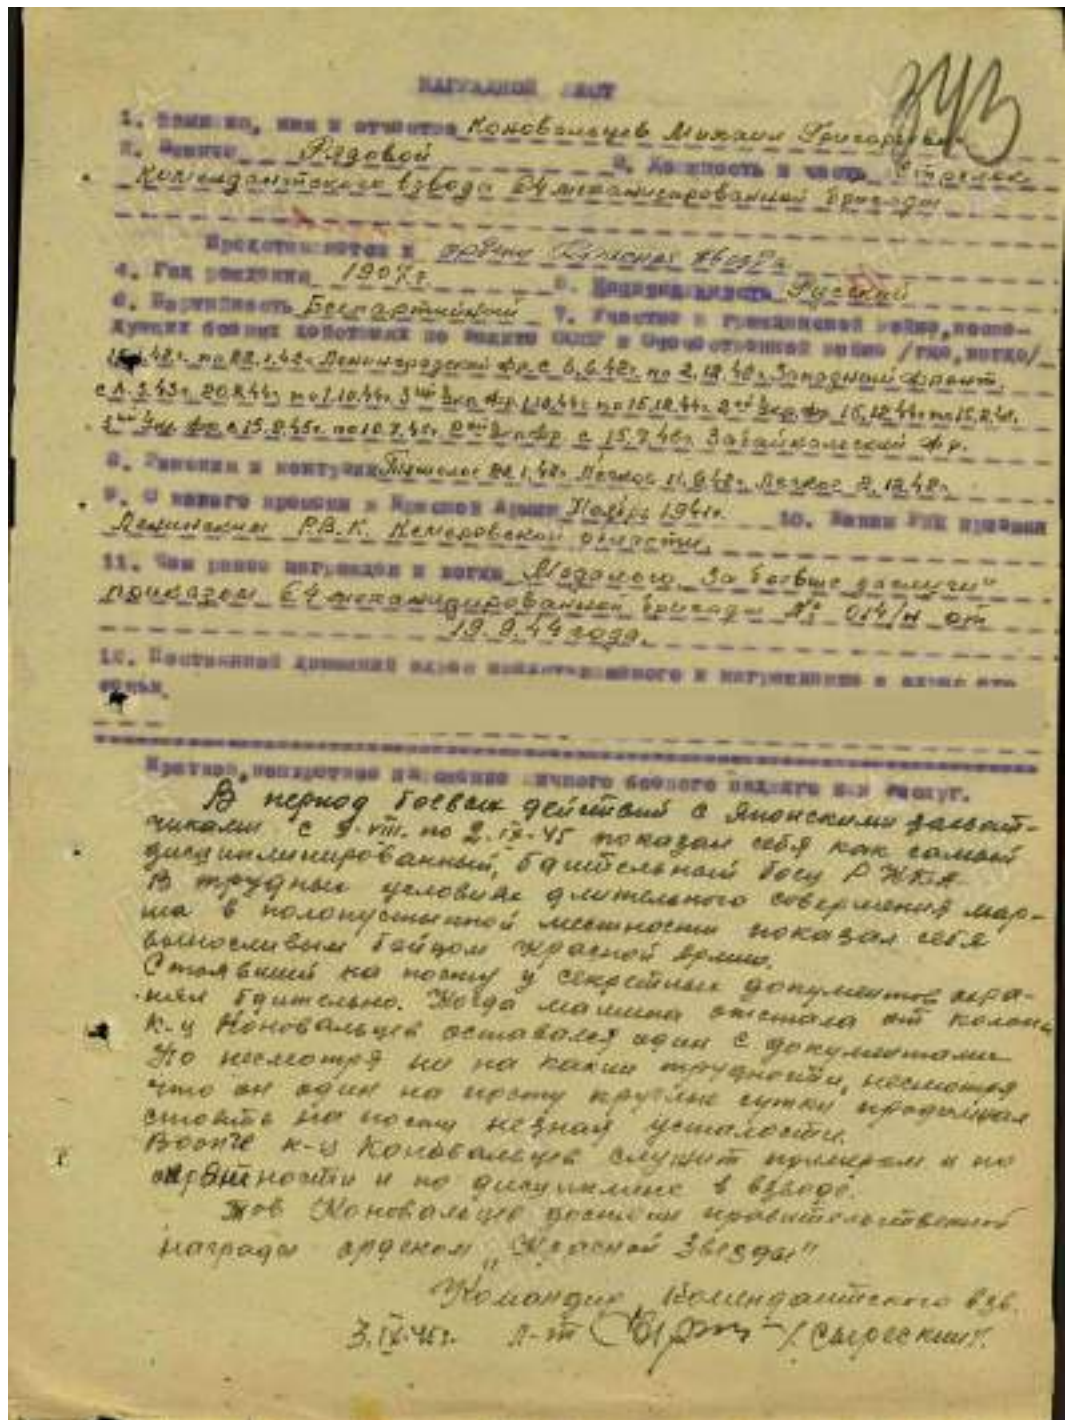 343
НАГРАДНОЙ ЛИСТ
1. Фамилия, имя и отчество Коновальцев Михаил Григорьевич
2. Звание Рядовой 3. Должность и часть Стрелок
Комендантского взвода 64 механизированной бригады
Представляется к ордену Красная звезда
4. Год рождения 1907 г. 5. Национальность Русский
6. Партийность Беспартийный 7. Участие в гражданской войне, после-
дующих боевых действиях по защите СССР и Отечественной войне /где, когда/
по 22.1.42г. Ленинградский фр. с 6.6.42г. по 2.12.42г. Западный фронт.
20.8.44г. по 1.10.44г. 3ий Укр. фр. 1.10.44г. по 15.12.44г. 2ой Укр. фр. 15.12.44г. по
3ий Укр. фр. с по 2ой Укр. фр. с 15.7.45г. Забайкальский фр.
8. Ранения и контузии Тяжелое 22.1.42г. Легкое 11.9.42г. Легкое 2.12.42г.
9. С какого времени в Красной Армии Ноябрь 1941г. 10. Каким РВК призван
Ленинским Р.В.К. Кемеровской области.
11. Чем ранее награжден и когда Медалью „За боевые заслуги"
приказом 64 механизированной бригады № 014/н от
19.9.44 года.
12. Постоянный домашний адрес представляемого к награждению и адрес его
семьи.
Краткое, конкретное изложение личного боевого подвига или заслуг.
В период боевых действий с Японскими захват-
чиками с 9.VIII. по 2.IX.45 показал себя как самый
дисциплинированный, бдительный боец РККА.
В трудных условиях длительного совершения мар-
ша в полопустынной местности показал себя
выносливым бойцом Красной армии.
Стоявший на посту у секретных документов охра-
нял бдительно. Когда машина отстала от колоны
к-ц Коновальцев оставался один с документами
Но несмотря ни на какие трудности, несмотря
что он один на посту круглые сутки продолжал
стоять на посту незная усталости.
Вообще к-ц Коновальцев служит примером и по
опрятности и по дисциплине в взводе.
Тов Коновальцев достоин правительственной
награды орденом „Красной Звезды"
Командир Комендантского взв.
3.IX.45г. л-т /Сырескин/.